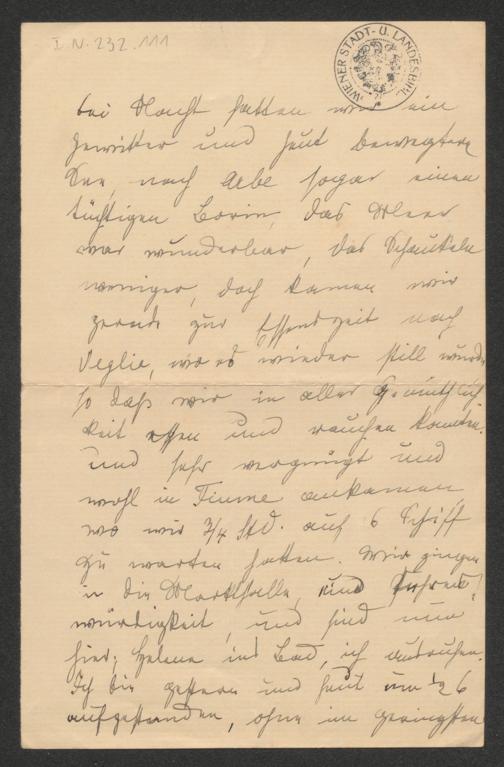 I.N. 232.111
WIENER STADT- U. LANDESBIBL.
bei Nacht hatten wir ein
Gewitter und heut bewegtere
See, nach Arbe sogar einen
tüchtigen Borin, das Meer
war wunderbar, das Schaukeln
weniger, doch kamen wir
gerade zur Essenszeit nach
Veglia, wo es wieder still wurde
so daß wir in aller Gemüthlich
keit essen und rauchen konnten
und sehr vergnügt und
wohl in Fiume ankamen,
wo wir 3/4 Std. auf 6 Schiff
zu warten hatten. Wir gingen
in die Markthalle, und
würdigkeit, und sind nun
hier; Helene ins Bad, ich ausruhen.
Ich bin gestern und heut um 1/2 6
aufgestanden, ohne im geringsten